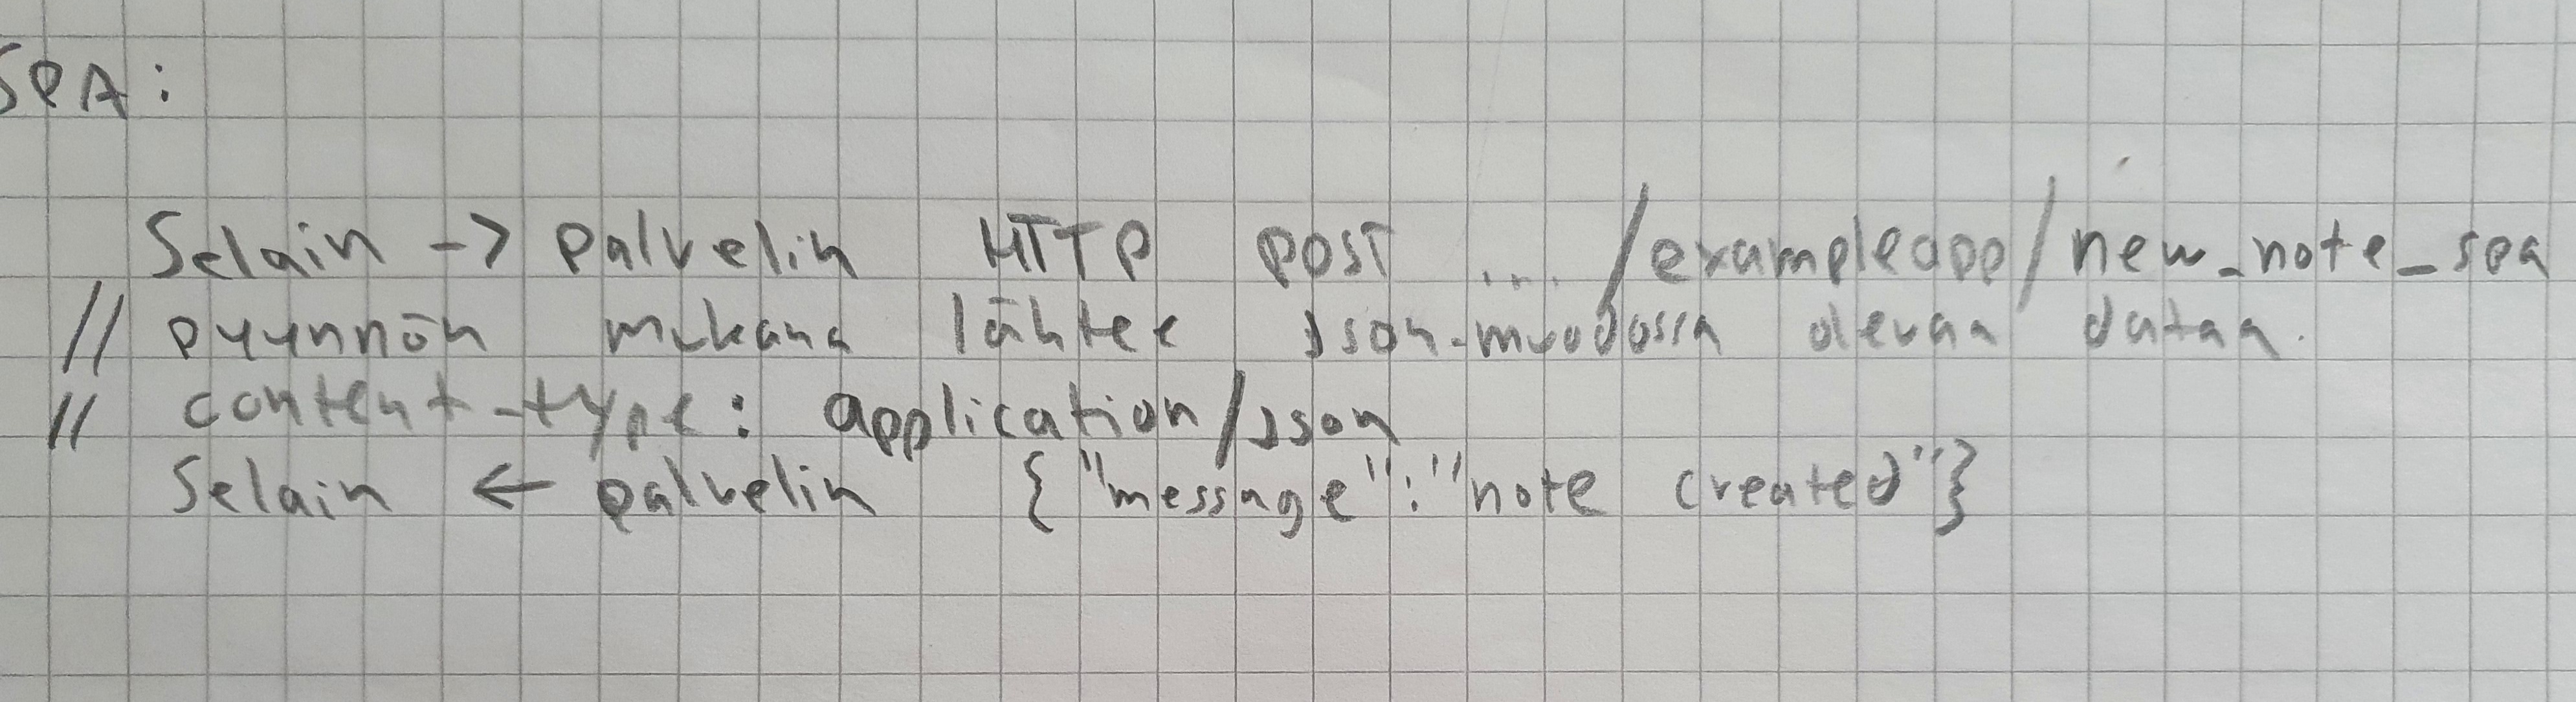 SPA:
Selain -> palvelin HTTP POST .../exampleapp/new_note_spa
// pyynnön mukana lähtee json-muodossa olevaa dataa.
// content-type: application/json
Selain <- palvelin {"message":"note created"}